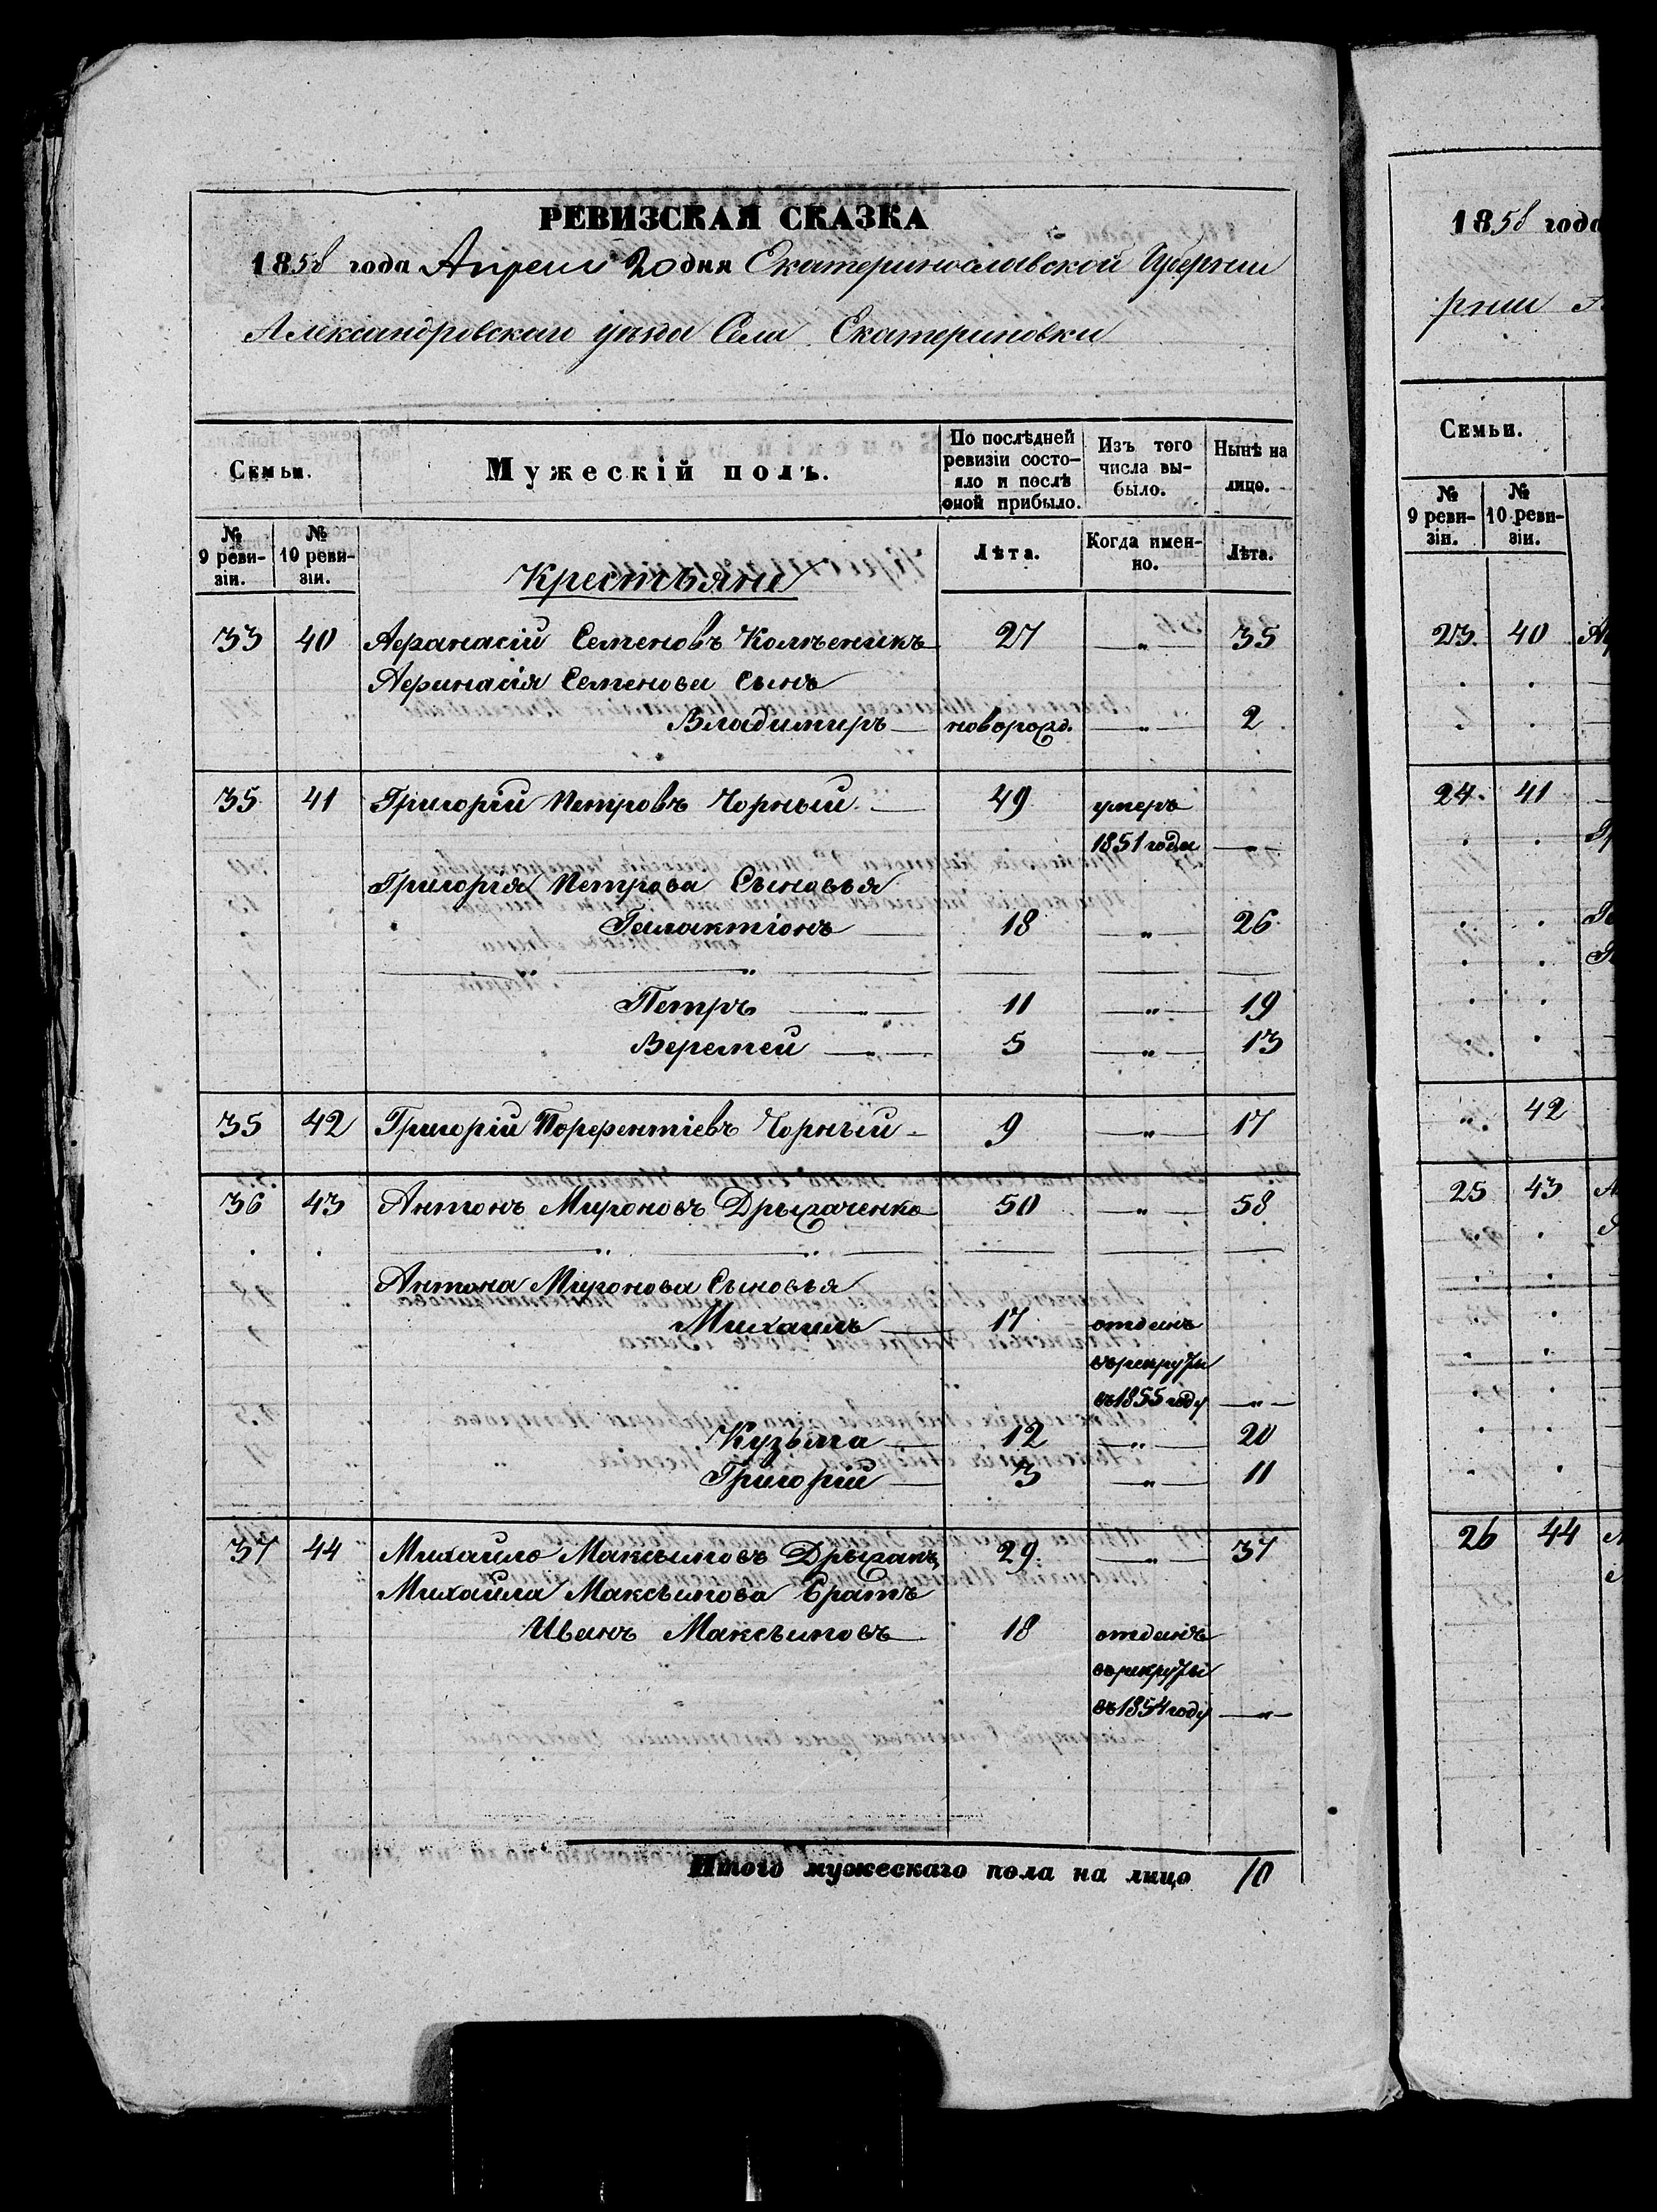 РЕВИЗСКАЯ СКАЗКА
1858 года Апреля 20 дня Екатеринославской Губернии
Александровскаго уѣзда Села Екатериновки
Семьи.
Мужескій полъ.
По послѣдней ревизіи состояло и послѣ оной прибыло.
Изъ того числа выбыло.
Нынѣ на лицо.
№ 9 ревизіи.
№ 10 ревизіи.
Лѣта.
Когда именно.
Лѣта.
Крестьяне
33 40 Афанасій Семеновъ 27 — „ — 35
Афанасія Семенова Сынъ
Владимиръ — новорожд. — „ — 2
35 41 Григорій Петровъ Чорный — 49 умеръ
1851 года — „ —
Григорія Петрова Сыновья
Галактіонъ — 18 „ 26
Петръ — „ — 11 — „ — 19
Веремей — „ — 5 — „ — 13
35 42 Григорій Порфентіевъ Чорный — 9 — „ — 17
36 43 Антонъ Мироновъ Дрыжаченко 50 — „ — 58
Антона Миронова Сыновья
Михаилъ — 17 отданъ
въ рекруты
въ 1855 году — „ —
Кузьма — 12 — „ — 20
Григорій — 3 — „ — 11
37 44 Михайло Максимовъ 29 — „ — 37
Михайла Максимова братъ
Иванъ Максимовъ — 18 отданъ
въ рекруты
въ 1854 году — „ —
Итого мужескаго пола на лицо 10
1858 года
рніи
Семьи.
№ 9 ревизіи.
№ 10 ревизіи.
23. 40
24. 41
„ 42
25 43
26 44